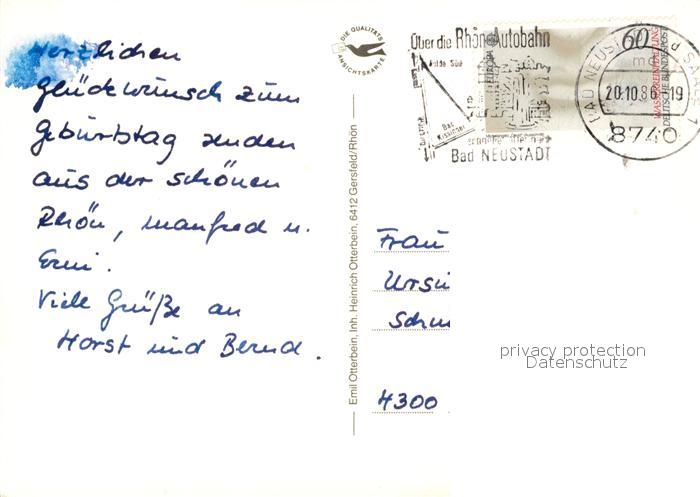 Herzlichen
Glückwunsch zum
Geburtstag senden
aus der schönen
Rhön, Manfred u.
Erni.
Viele Grüße an
Horst und Bernd.
DIE QUALITÄTS
ANSICHTSKARTE
Emil Otterbein, Inh. Heinrich Otterbein, 6412 Gersfeld/Rhön
Über die Rhön Autobahn
Fulda Süd
Bad
Kissingen
Bad NEUSTADT
EUROPA
60
WASSERREINHALTUNG
DEUTSCHE BUNDESPOST
BAD NEUSTADT
20.10.86-19
8740
Frau
Ursu
Schu
4300
privacy protection
Datenschutz